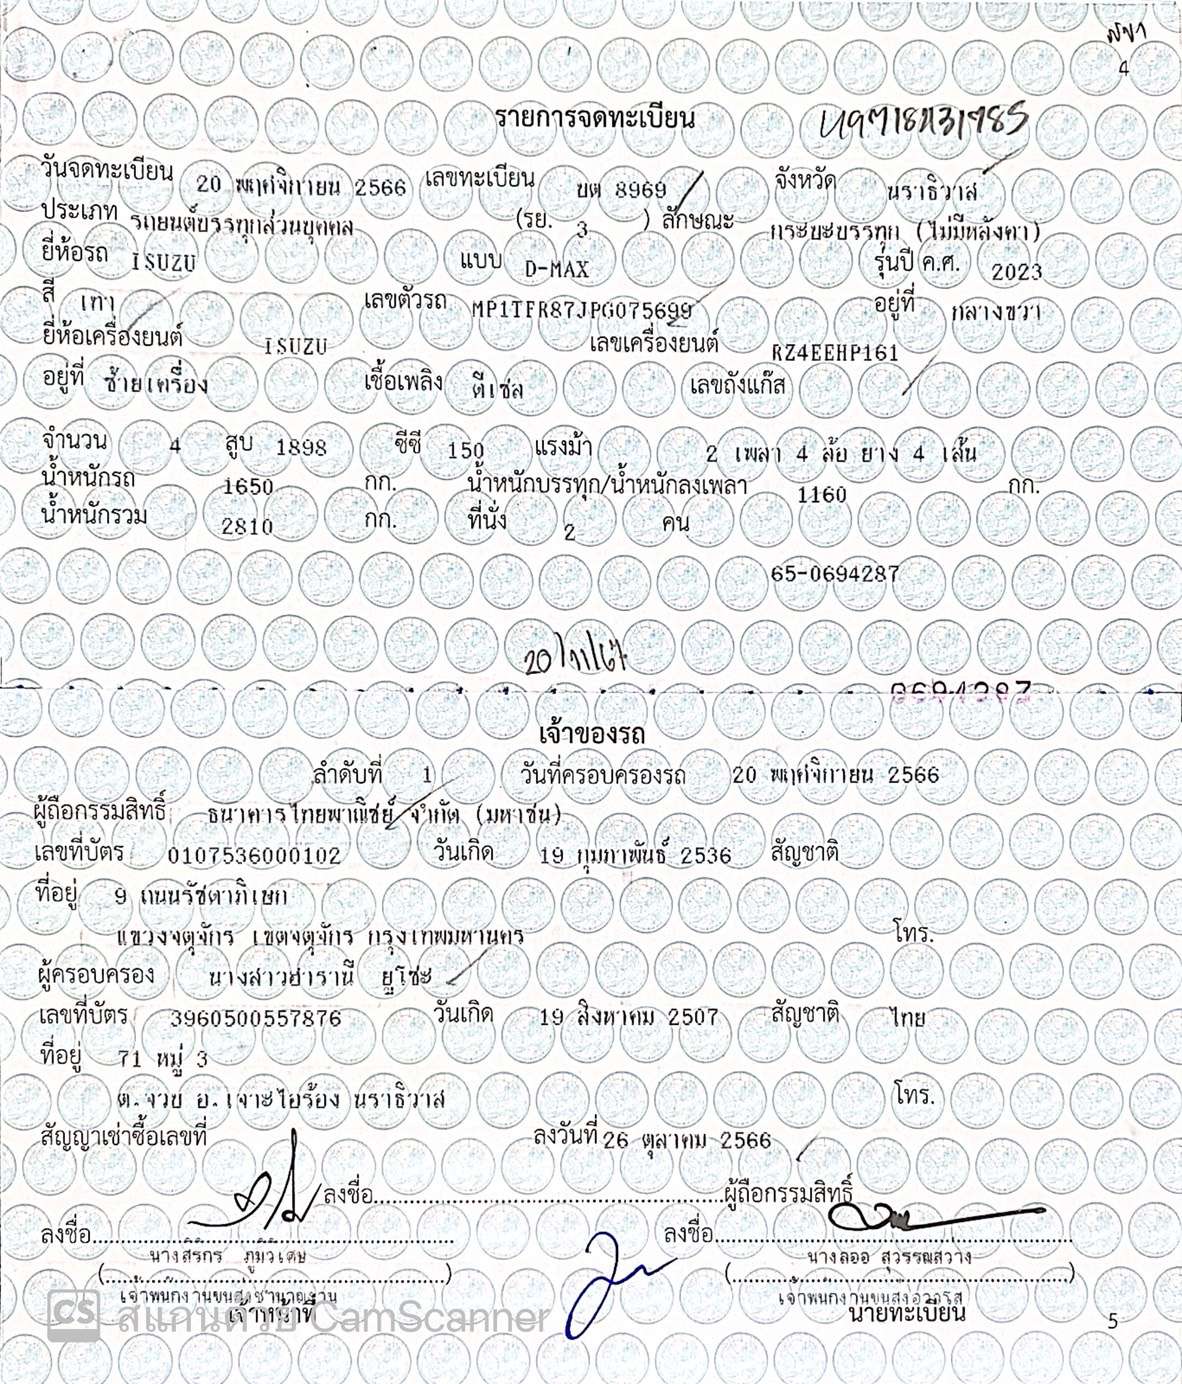 4
รายการจดทะเบียน
วันจดทะเบียน 20 พฤศจิกายน 2566 เลขทะเบียน บต 8969 จังหวัด นราธิวาส
ประเภท รถยนต์บรรทุกส่วนบุคคล (รย. 3 ) ลักษณะ กระบะบรรทุก (ไม่มีหลังคา)
ยี่ห้อรถ ISUZU แบบ D-MAX รุ่นปี ค.ศ. 2023
สี เทา เลขตัวรถ MP1TFR87JPG075699 อยู่ที่ กลางขวา
ยี่ห้อเครื่องยนต์ ISUZU เลขเครื่องยนต์ RZ4EEHP161
อยู่ที่ ซ้ายเครื่อง เชื้อเพลิง ดีเซล เลขถังแก๊ส
จำนวน 4 สูบ 1898 ซีซี 150 แรงม้า 2 เพลา 4 ล้อ ยาง 4 เส้น
น้ำหนักรถ 1650 กก. น้ำหนักบรรทุก/น้ำหนักลงเพลา 1160 กก.
น้ำหนักรวม 2810 กก. ที่นั่ง 2 คน
65-0694287
20/11/67
0694287
เจ้าของรถ
ลำดับที่ 1 วันที่ครอบครองรถ 20 พฤศจิกายน 2566
ผู้ถือกรรมสิทธิ์ ธนาคารไทยพาณิชย์ จำกัด (มหาชน)
เลขที่บัตร 0107536000102 วันเกิด 19 กุมภาพันธ์ 2536 สัญชาติ
ที่อยู่ 9 ถนนรัชดาภิเษก
แขวงจตุจักร เขตจตุจักร กรุงเทพมหานคร โทร.
ผู้ครอบครอง นางสาวฮารานี ยูโซ๊ะ
เลขที่บัตร 3960500557876 วันเกิด 19 สิงหาคม 2507 สัญชาติ ไทย
ที่อยู่ 71 หมู่ 3
ต.จวบ อ.เจาะไอร้อง นราธิวาส โทร.
สัญญาเช่าซื้อเลขที่ ลงวันที่ 26 ตุลาคม 2566
ลงชื่อ ผู้ถือกรรมสิทธิ์
ลงชื่อ ลงชื่อ
นางสิริกร ภูมิวิเศษ นางลออ สุวรรณสวาง
( ) ( )
เจ้าพนักงานขนส่งชำนาญงาน เจ้าพนักงานขนส่งอาวุโส
เจ้าหน้าที่ นายทะเบียน
CS สแกนด้วย CamScanner
5